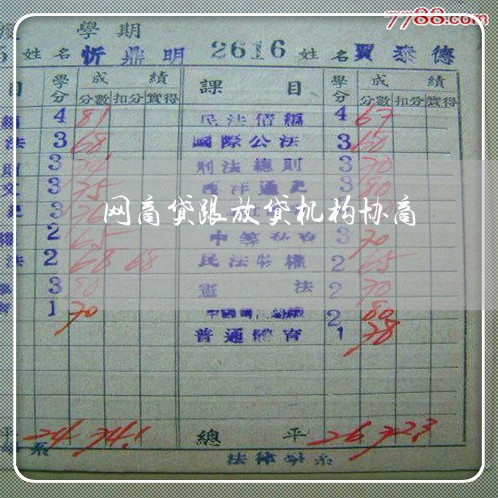 7788.com
學期
姓名 忻鼎明 2616 姓名 賈泰德
目 學分 成績 課目 學分 成績
分數 扣分 實得 分數 扣分 實得
4 81 民法債編 4 67
法 3 68 國際公法 3 60
3 刑法總則 3 70
3 75 西洋通史 3 80
网商贷跟放贷机构协商
2 65 3 70
法 2 68 68 民法物權 2 65
3 80 憲法 2 70
1 70 2 80
普通體育 1 78
平 24 74.1 總平 26 72.3
系 法律學系